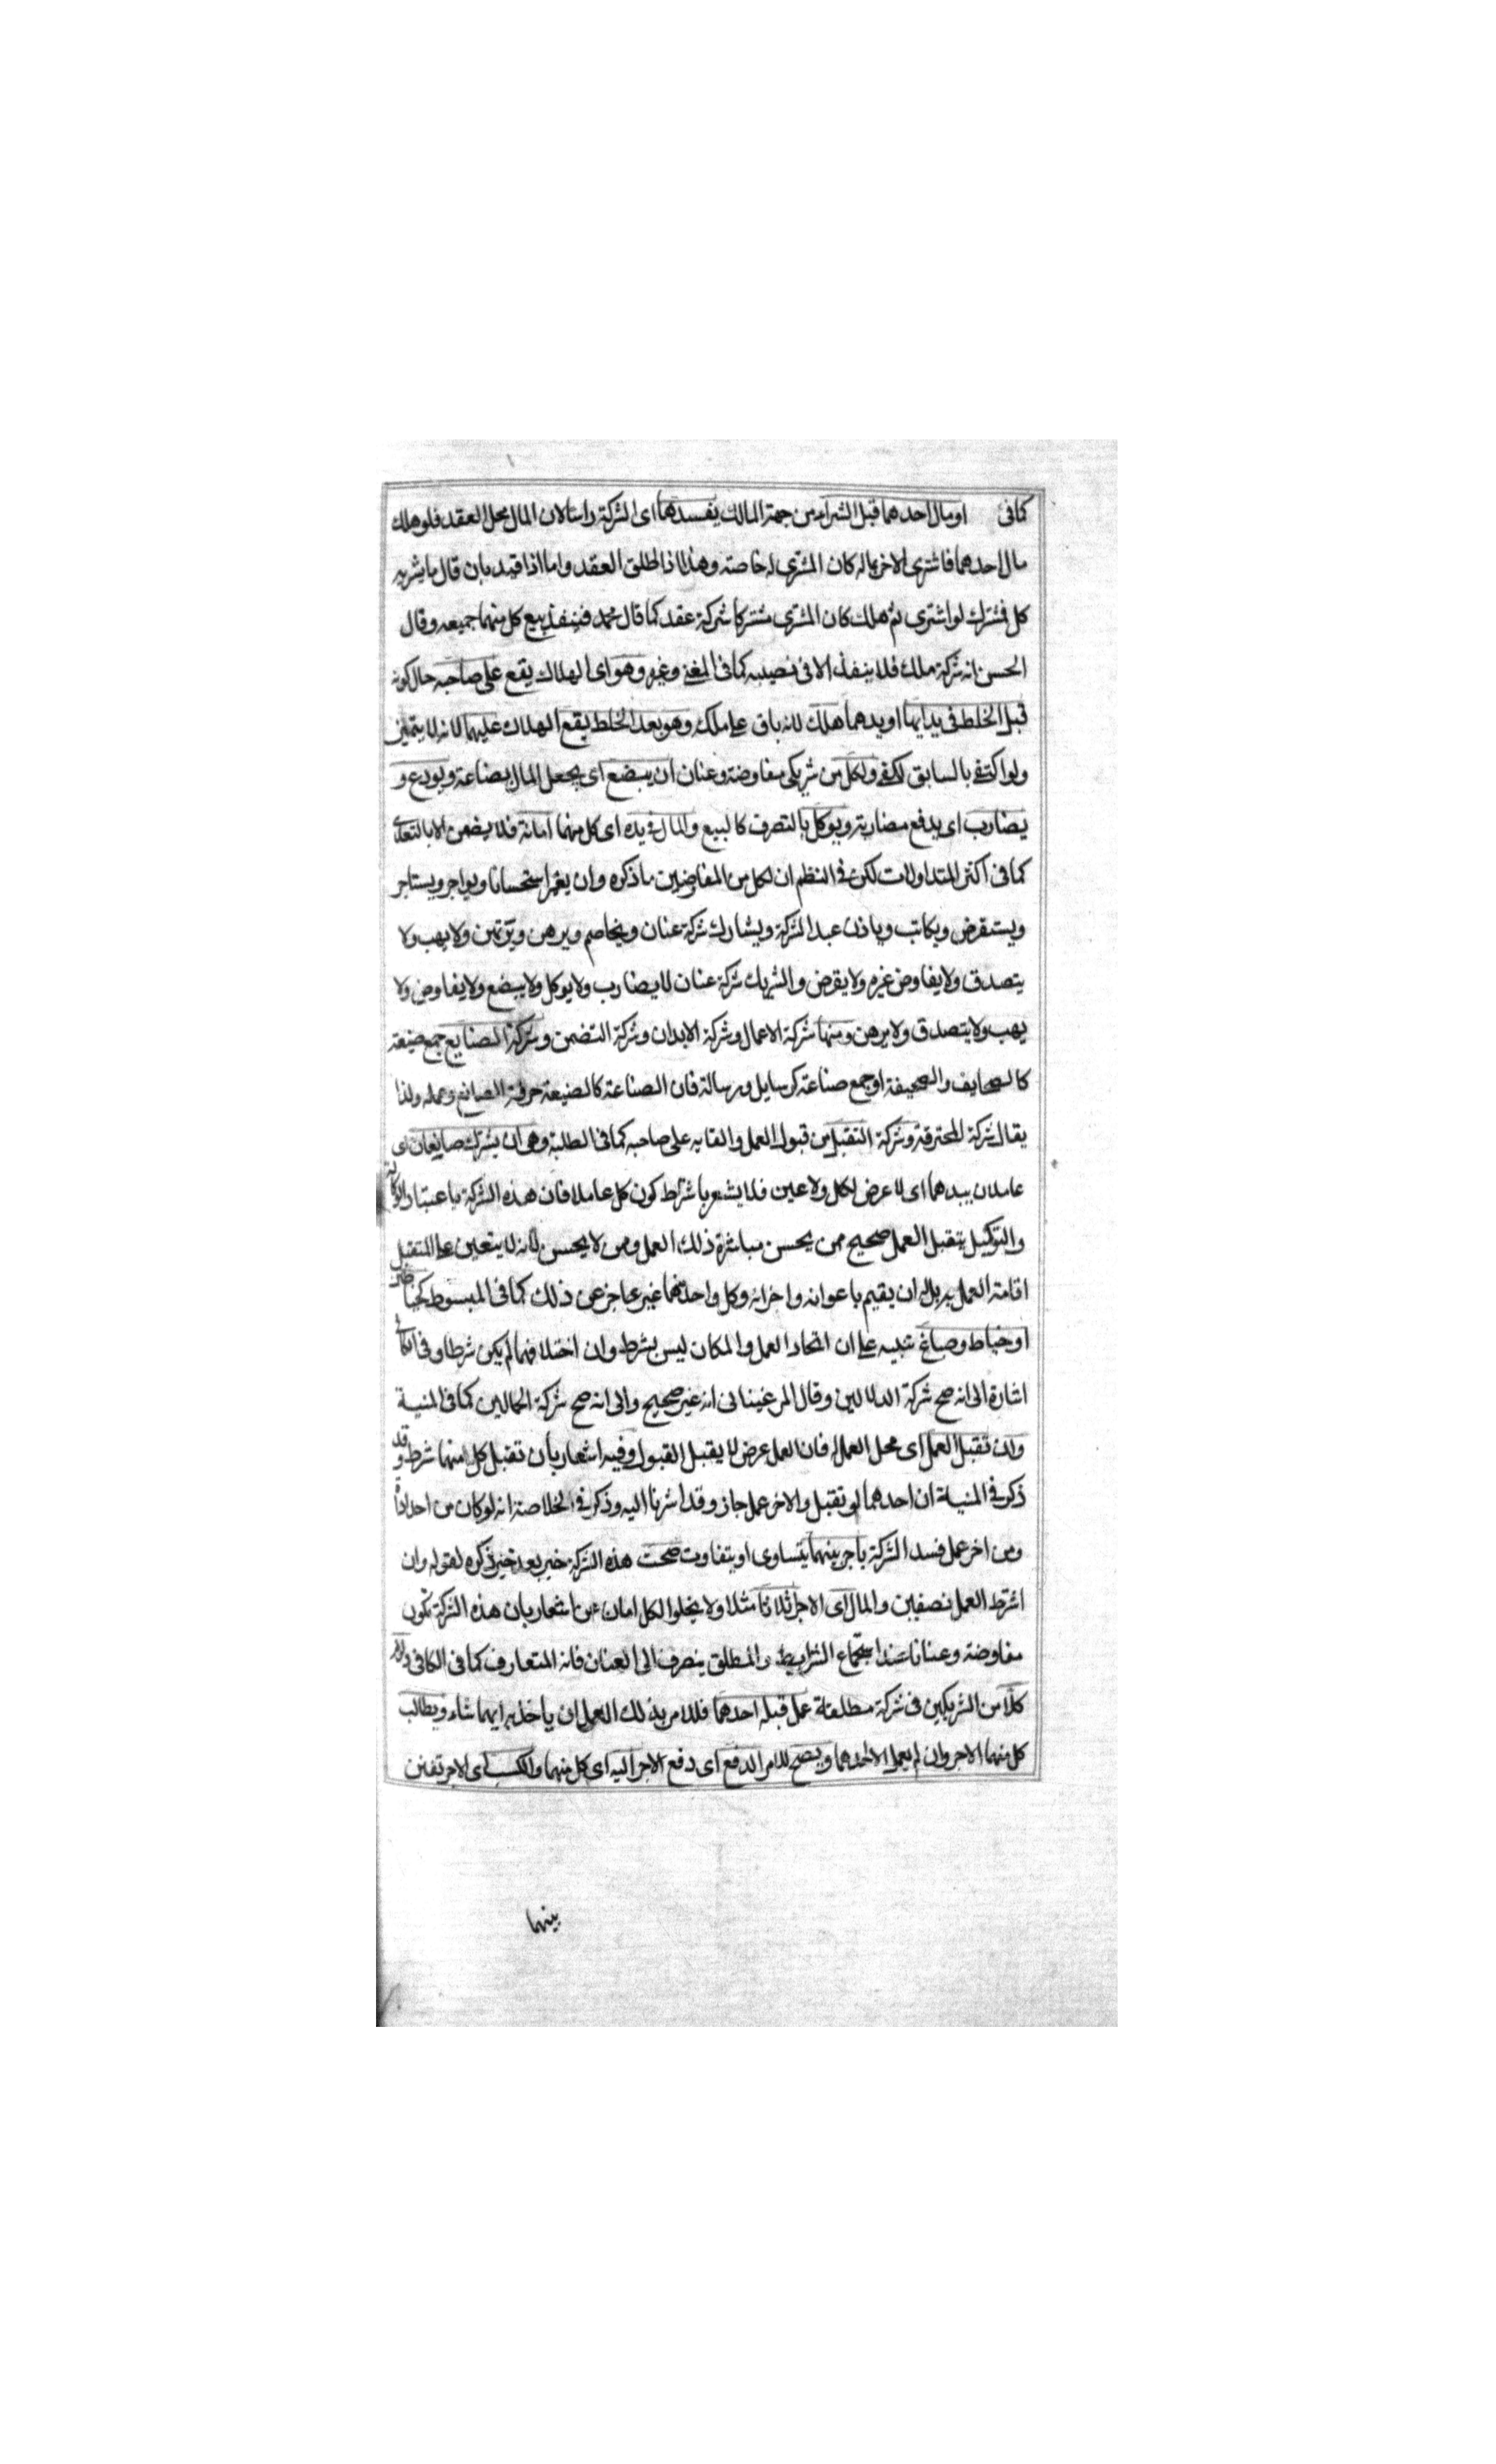 كما فى او مال احدهما قبل الشراء من جهة المالك يفسدها اى الشركة راسا لان المال محل العقد فلو هلك
مال احدهما فاشترى الاخر بماله كان المشترى له خاصة وهذا اذا اطلق العقد واما اذا قيد بان قال ما يشتريه
كل فمشترك لو اشترى ثم هلك كان المشترى مشتركا شركة عقد كما قال محمد فينفذ بيع كل منهما جميعه وقال
الحسن انه شركة ملك فلا ينفذ الا فى نصيبه كما فى المغنى وغيره وهو اى الهلاك يقع على صاحبه حال كونه
قبل الخلط فى يد ايهما او يدهما هلك لانه باق على ملكه وهو بعد الخلط يقع الهلاك عليهما لانه لا يتميز
ولو اكتفى بالسابق لكفى ولكل من شريكى مفاوضة وعنان ان يبضع اى يجعل المال بضاعة ويودع و
يضارب اى يدفع مضاربة ويوكل بالتصرف كالبيع والمال فى يده اى كل منهما امانة فلا يضمن الا بالتعدى
كما فى اكثر المتداولات لكن فى النظم ان لكل من المفاوضين ما ذكره وان يعير استحسانا ويواجر ويستاجر
ويستقرض ويكاتب وياذن عبد الشركة ويشارك شركة عنان ويخاصم ويرهن ويرتهن ولا يهب ولا
يتصدق ولا يفاوض غيره ولا يقرض والشريك شركة عنان لا يضارب ولا يوكل ولا يبضع ولا يفاوض ولا
يهب ولا يتصدق ولا يرهن ومنها شركة الاعمال وشركة الابدان وشركة التضمن وشركة الصنايع جمع صنيعة
كالصحايف والصحيفة او جمع صناعة كرسايل ورسالة فان الصناعة كالصنيعة حرفة الصانع وعمله ولذا
يقال شركة المحترفة وشركة التقبل من قبول العمل والقايه على صاحبه كما فى الطلبة وهى ان يشترك صانعان اى
عاملان بيدهما اى لا عرض لكل ولا عين فلا يشعر باشتراط كون كل عاملا فان هذه الشركة باعتبار الوكالة
والتوكيل بتقبل العمل صحيح ممن يحسن مباشرة ذلك العمل وممن لا يحسن لانه لا يتعين على المتقبل
اقامة العمل بيديه بل له ان يقيم باعوانه واجرائه وكل واحد منهما غير عاجز عن ذلك كما فى المبسوط كخياطين
او خياط وصباغ تنبيه على ان اتحاد العمل والمكان ليس بشرط وان اختلافهما لم يكن شرطا وفى الكافى
اشارة الى انه صح شركة الدلالين وقال المرغينانى انه غير صحيح والى انه صح شركة الحمالين كما فى المنية
وان تقبل العمل اى محل العمل له فان العمل عرض لا يقبل القبول وفيه اشعار بان تقبل كل منهما شرط وقد
ذكر فى المنية ان احدهما لو تقبل والاخر عمل جاز وقد اشرنا اليه وذكر فى الخلاصة انه لو كان من احد اداة
ومن اخر عمل فسد الشركة باجر بينهما يتساوى او يتفاوت صحت هذه الشركة خبر بعد خبر ذكره لقوله وان
اشترط العمل نصفين والمال اى الاجر اثلاثا مثلا ولا يخلوا الكل امان عن اشعار بان هذه الشركة تكون
مفاوضة وعنانا عند اجتماع الشرايط والمطلق ينصرف الى العنان فانه المتعارف كما فى الكافى ولزم
كلا من الشريكين فى شركة مطلقة عمل قبله احدهما فللامر بذلك العمل ان ياخذ به ايهما شاء ويطالب
كل منهما الاجر وان لم يعمل الا احدهما ويصح للامر الدفع اى دفع الاجر اليه اى كل منهما والكسب اى الاجر
بينهما